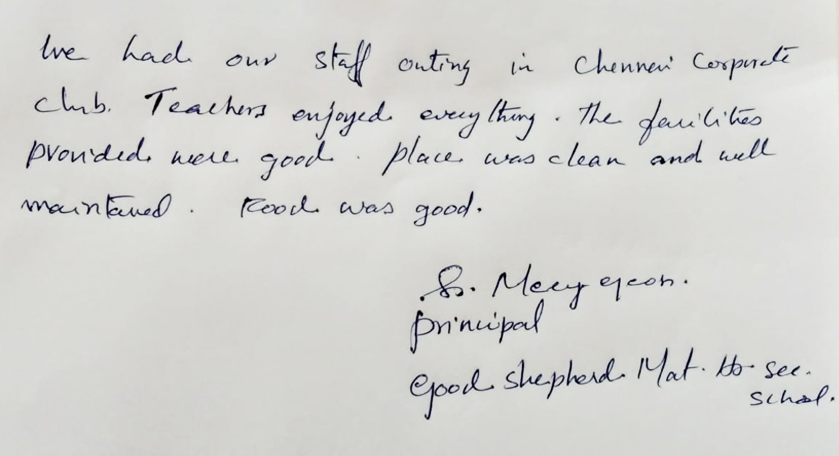 We had our staff outing in Chennai Corporate
Club. Teachers enjoyed everything. The facilities
provided were good. place was clean and well
maintained. Food was good.
Principal
Good Shepherd Mat. Hr. sec.
School.